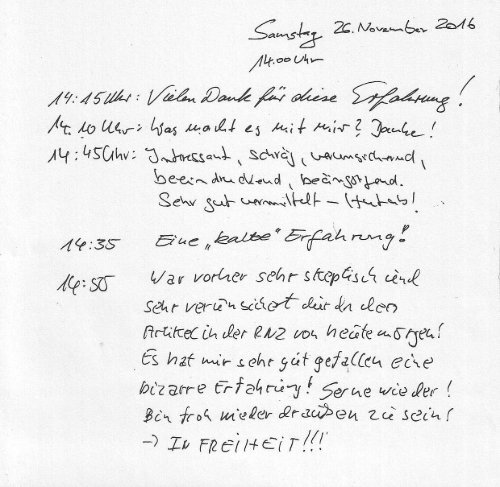 Samstag 26. November 2016
14.00 Uhr
14:15 Uhr: Vielen Dank für diese Erfahrung!
14:10 Uhr: Was macht es mit mir? Danke!
14:45 Uhr: Interessant, schräg, verunsichernd,
beeindruckend, beängstigend.
Sehr gut vermittelt –
14:35 Eine „kalte" Erfahrung!
14:55 War vorher sehr skeptisch und
sehr verunsichert durch den
Artikel in der RNZ von heute morgen!
Es hat mir sehr gut gefallen eine
bizarre Erfahrung! Gerne wieder!
Bin froh wieder draußen zu sein!
→ IN FREIHEIT!!!